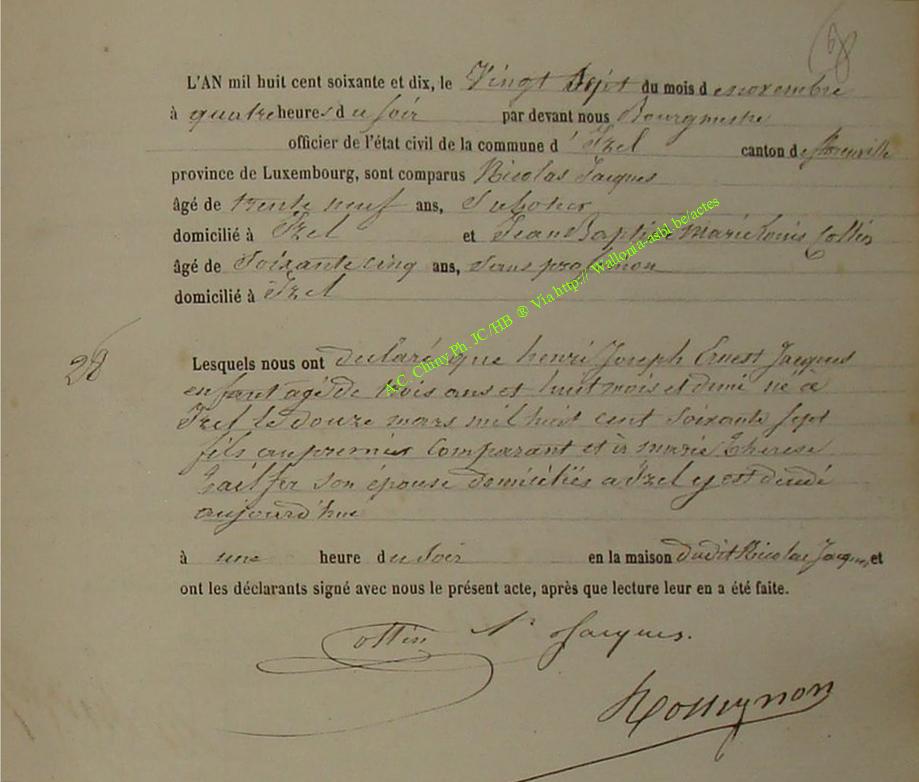 L'AN mil huit cent soixante et dix, le Vingt Sept du mois de novembre
à quatre heures du soir par devant nous Bourgmestre
officier de l'état civil de la commune d'Izel canton de florenville
province de Luxembourg, sont comparus Nicolas Jacques
âgé de trente neuf ans, Sabotier
domicilié à Izel et Jean Baptiste Marie Louis Collin
âgé de Soixante cinq ans, Sans profession
domicilié à Izel
A.C. Chiny Ph. JC/HB ® Via http:// Wallonia-asbl.be/actes
28
Lesquels nous ont déclaré que henri Joseph Ernest Jacques
enfant agé de trois ans et huit mois et demi né à
Izel le douze mars mil huit cent soixante sept
fils au premier comparant et à marie Therese
son épouse domiciliés a Izel y est décédé
aujourd'hui
à une heure du Soir en la maison dudit Nicolas Jacques, et
ont les déclarants signé avec nous le présent acte, après que lecture leur en a été faite.
Collin Ns Jacques.
Rossignon